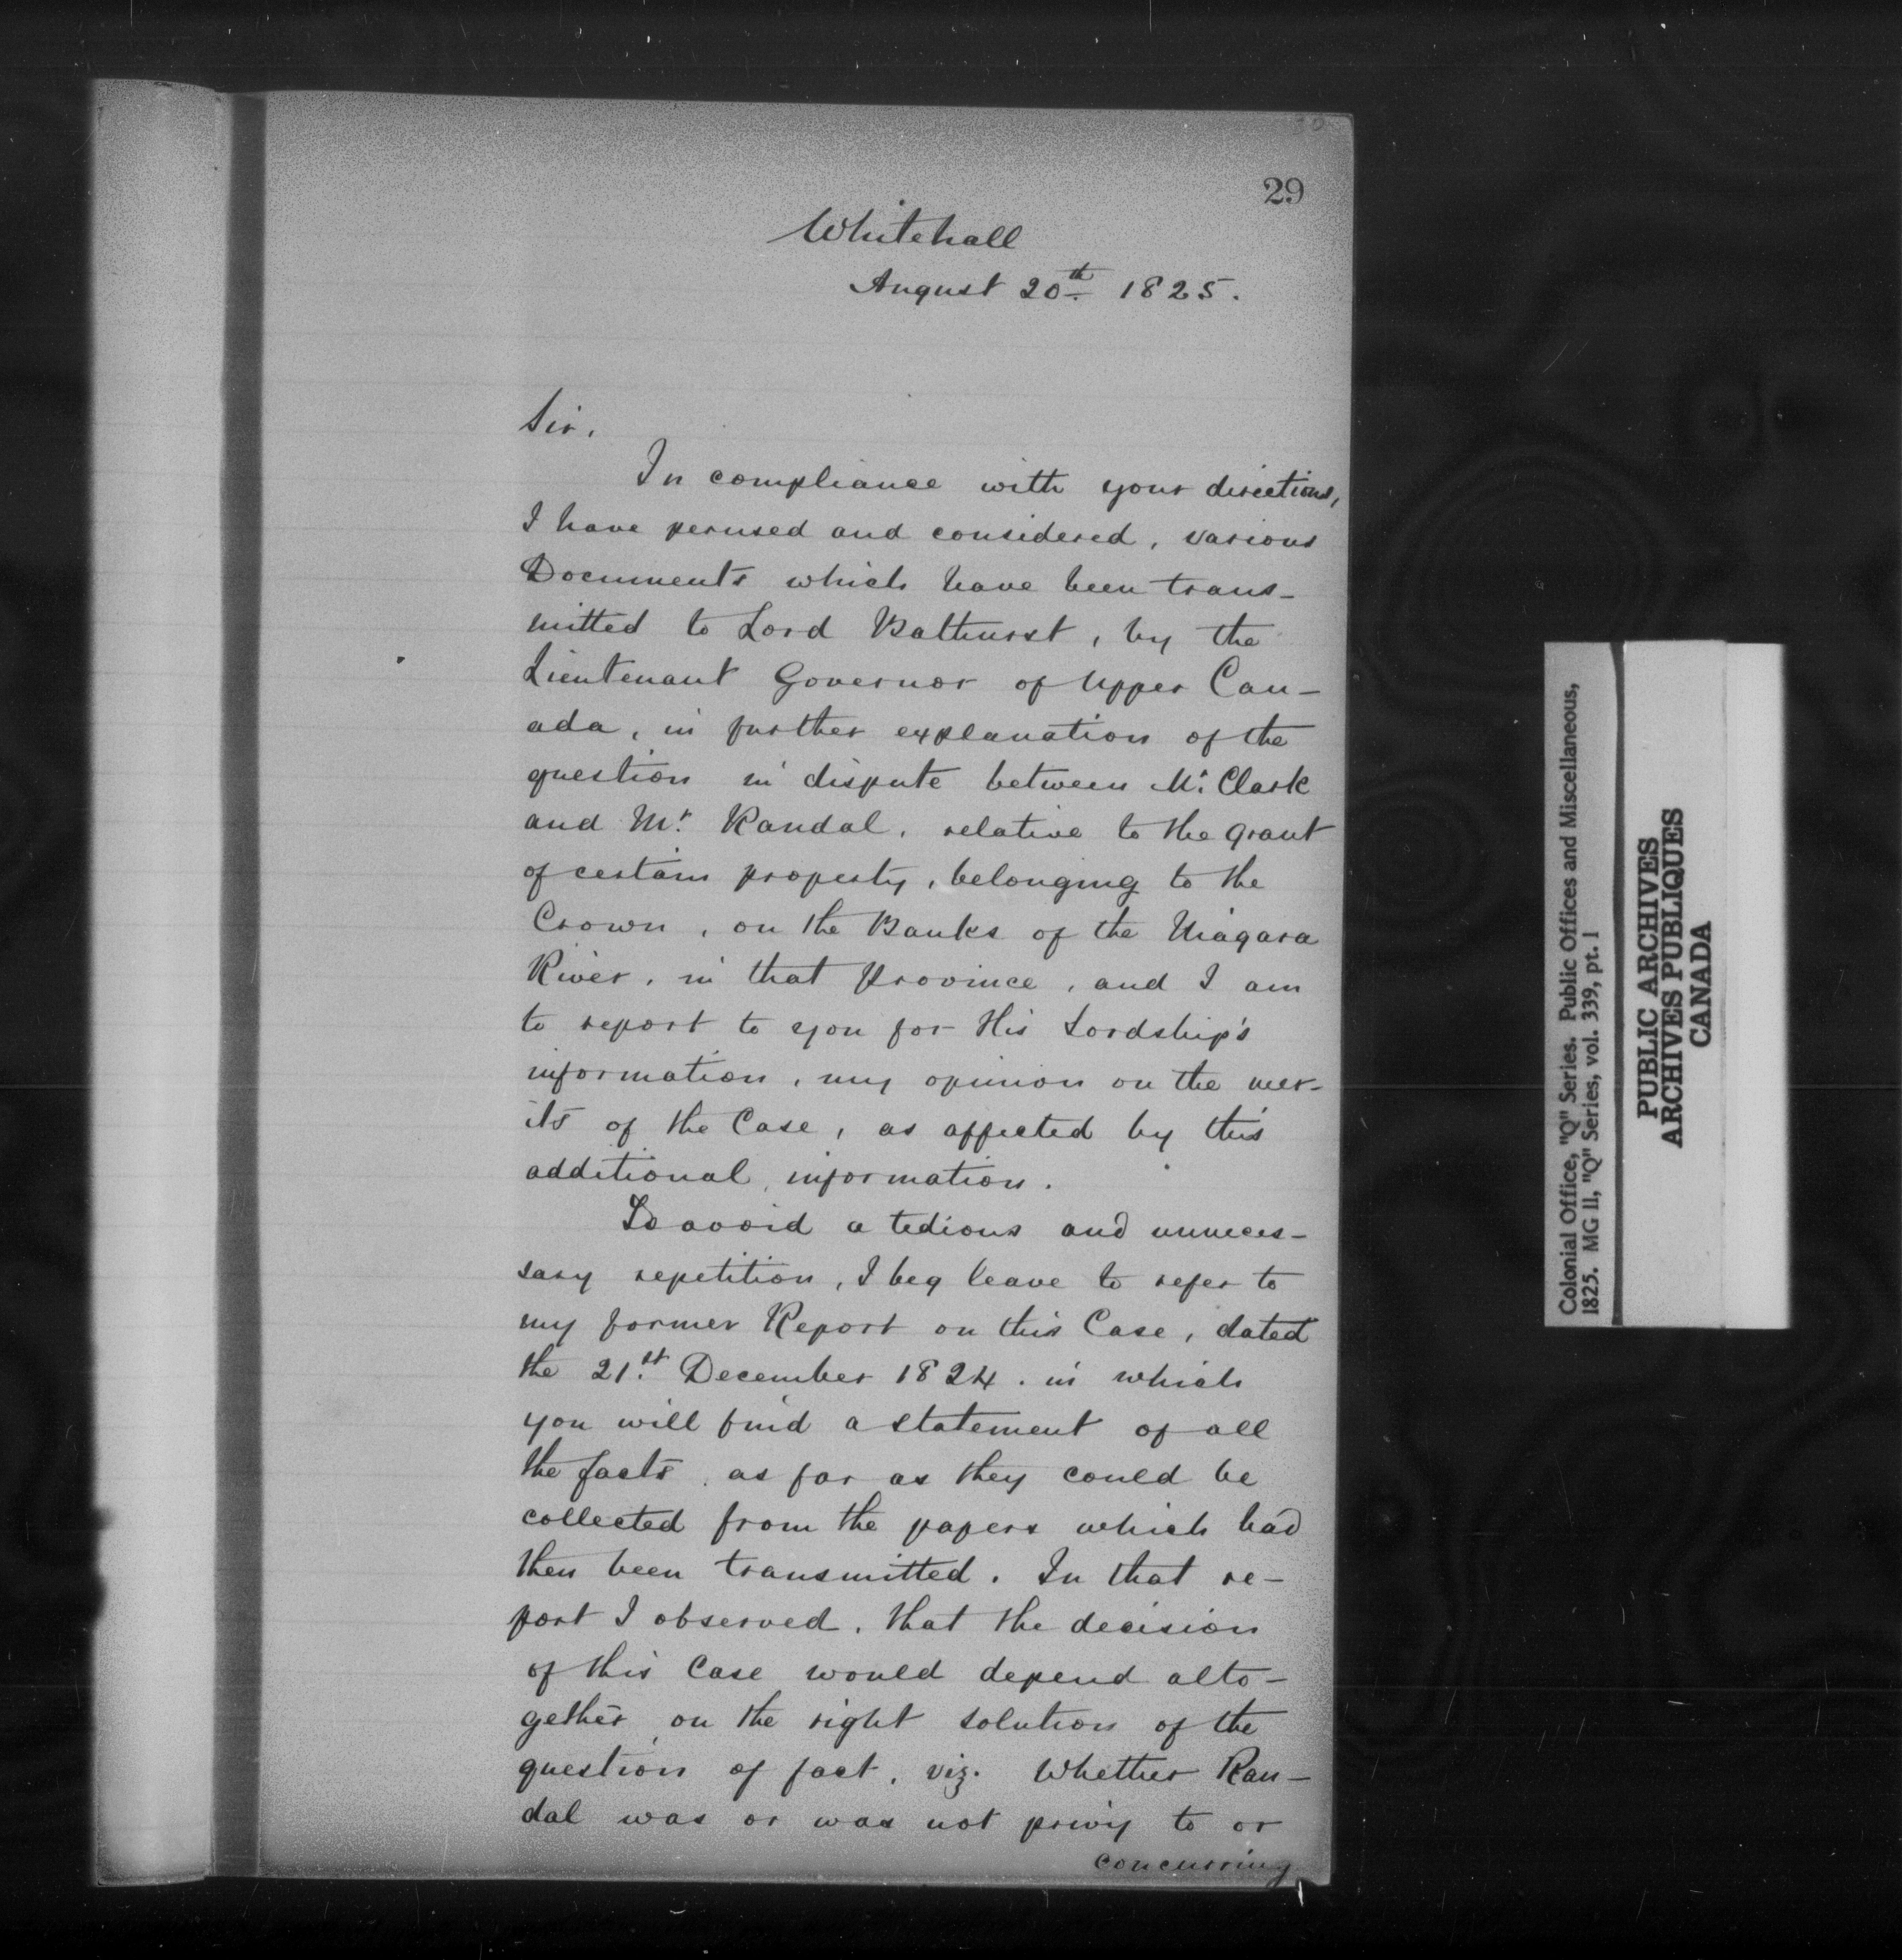 29
Whitehall
August 20th 1825.
Sir,
In compliance with your directions,
I have perused and considered, various
Documents which have been trans-
mitted to Lord Bathurst, by the
Lieutenant Governor of Upper Can-
ada, in further explanation of the
question in dispute between Mr. Clark
and Mr. Randal, relative to the grant
of certain property, belonging to the
Crown, on the Banks of the Niagara
River, in that Province, and I am
to report to you for His Lordship's
information, my opinion on the mer-
its of the Case, as affected by this
additional information.
To avoid a tedious and unneces-
sary repetition, I beg leave to refer to
my former Report on this Case, dated
the 21.st December 1824. in which
you will find a statement of all
the facts, as far as they could be
collected from the papers which had
then been transmitted. In that re-
port I observed, that the decision
of this Case would depend alto-
gether, on the right solution of the
question of fact, viz. Whether Ran-
dal was or was not privy to or
concurring
Colonial Office, "Q" Series. Public Offices and Miscellaneous,
1825. MG 11, "Q" Series, vol. 339, pt. 1
PUBLIC ARCHIVES
ARCHIVES PUBLIQUES
CANADA